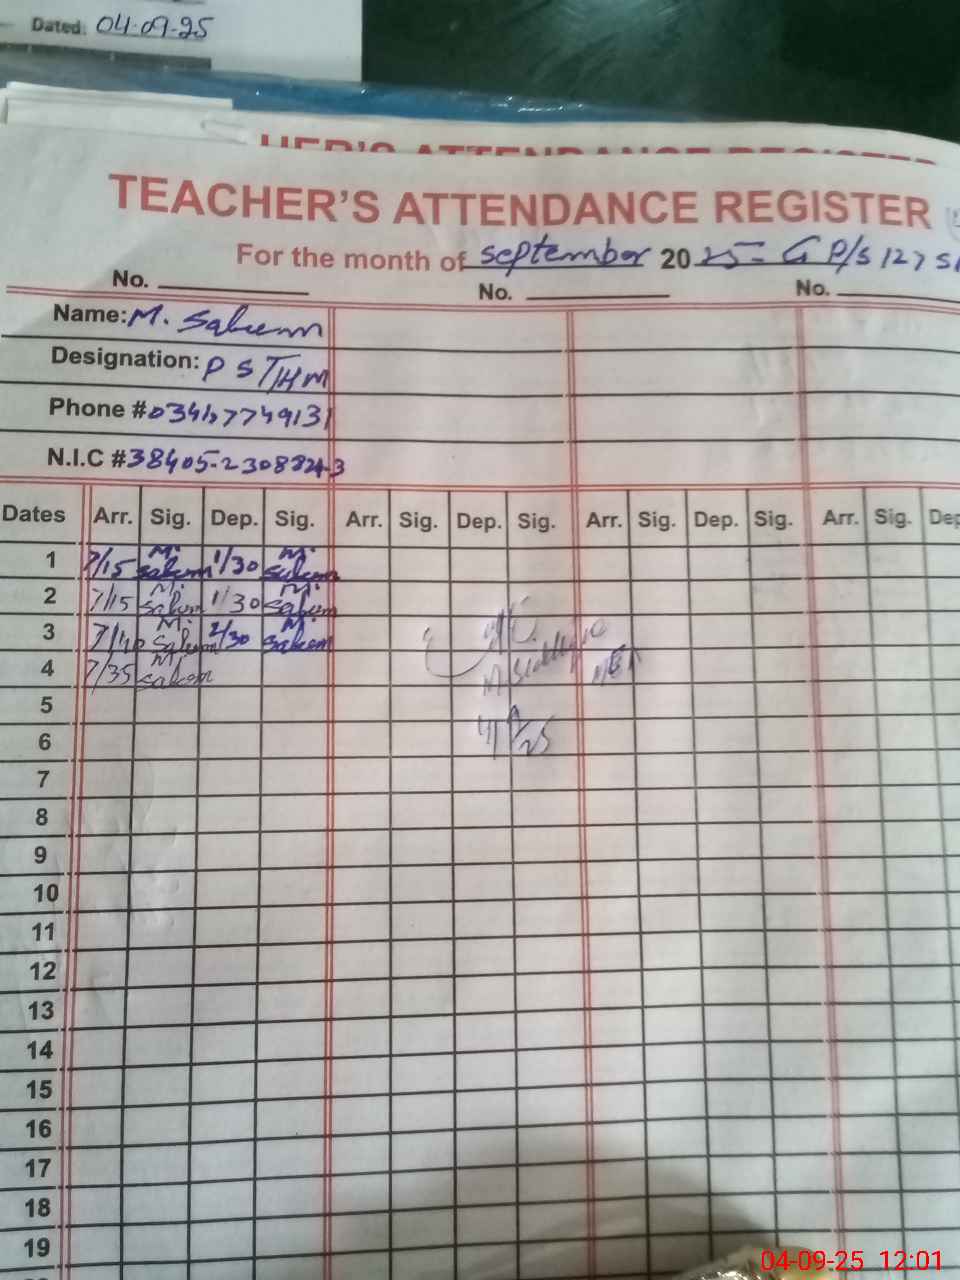 Dated: 04-09-25
TEACHER'S ATTENDANCE REGISTER
TEACHER'S ATTENDANCE REGISTER
For the month of september 2025 - G P/S 127 S
No. No. No.
Name: M. Saleem
Designation: PST/HM
Phone #
N.I.C #38405-2308824-3
Dates Arr. Sig. Dep. Sig. Arr. Sig. Dep. Sig. Arr. Sig. Dep. Sig. Arr. Sig. Dep
1 7/15 M. Saleem 1/30 M. Saleem
2 7/15 M. Saleem 1/30 M. Saleem
3 7/40 M. Saleem 2/30 M. Saleem
4 7/35 M. Saleem
5
6
7
8
9
10
11
12
13
14
15
16
17
18
19
04-09-25 12:01